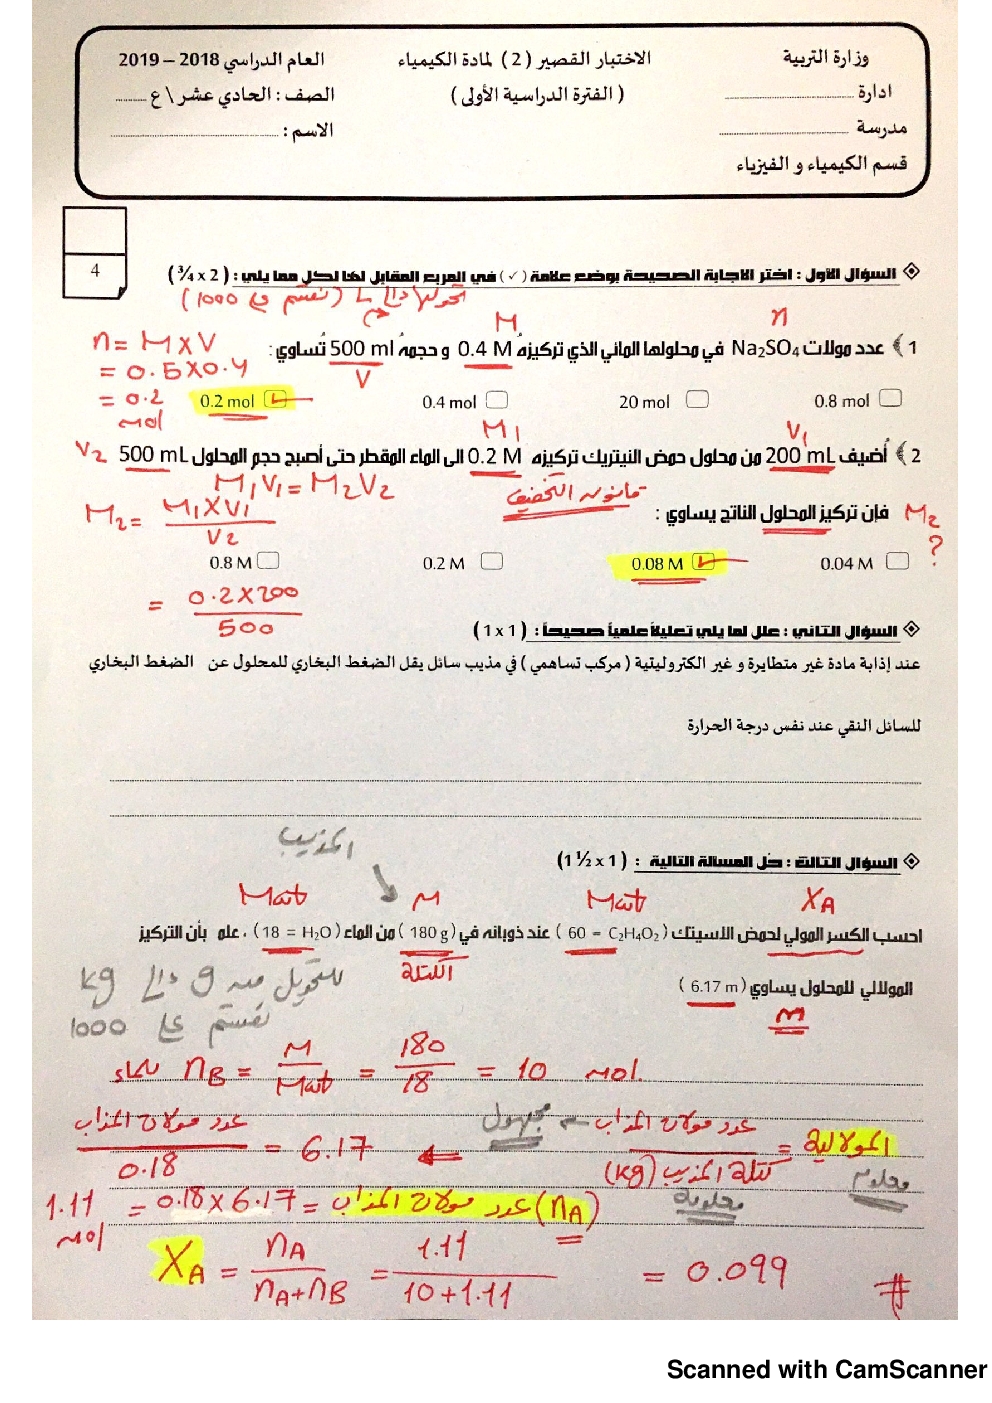 وزارة التربية
الاختبار القصير ( 2 ) لمادة الكيمياء
العام الدراسي 2018 – 2019
ادارة ........................
( الفترة الدراسية الأولى )
الصف : الحادي عشر \ ع ........
مدرسة ........................
الاسم : ........................
قسم الكيمياء و الفيزياء
4
السؤال الأول : اختر الاجابة الصحيحة بوضع علامة ( ✓ ) في المربع المقابل لها لكل مما يلي : ( 2 x ¾ )
( نقسم على 1000 )
n = M x V
M
n
1 ) عدد مولات Na₂SO₄ في محلولها المائي الذي تركيزه 0.4 M و حجمه 500 ml تساوي :
= 0.5 x 0.4
V
= 0.2 mol
0.8 mol
20 mol
0.4 mol
0.2 mol
V₁
M₁
V₂
2 ) أضيف 200 mL من محلول حمض النيتريك تركيزه 0.2 M الى الماء المقطر حتى أصبح حجم المحلول 500 mL
M₁V₁ = M₂V₂
قانون التخفيف
M₂ = M₁ x V₁ / V₂
فإن تركيز المحلول الناتج يساوي :
M₂ ?
0.04 M
0.08 M
0.2 M
0.8 M
= 0.2 x 200 / 500
السؤال الثاني : علل لما يلي تعليلاً علمياً صحيحاً : ( 1 x 1 )
عند إذابة مادة غير متطايرة و غير الكتروليتية ( مركب تساهمي ) في مذيب سائل يقل الضغط البخاري للمحلول عن الضغط البخاري
للسائل النقي عند نفس درجة الحرارة
المذيب
السؤال الثالث : حل المسألة التالية : ( 1 x 1 ½ )
X_A
Mwt
M
Mwt
احسب الكسر المولي لحمض الأسيتك ( C₂H₄O₂ = 60 ) عند ذوبانه في ( 180 g ) من الماء ( H₂O = 18 ) ، علم بأن التركيز
الكتلة
المولالي للمحلول يساوي ( 6.17 m )
للتحويل من g إلى kg
نقسم على 1000
m
للماء n_B = M / Mwt = 180 / 18 = 10 mol.
المولالية = عدد مولات المذاب / كتلة المذيب (kg)
مجهول
معلوم
معلومة
عدد مولات المذاب / 0.18 = 6.17
(n_A) عدد مولات المذاب = 0.18 x 6.17 = 1.11 mol
X_A = n_A / n_A + n_B = 1.11 / 10 + 1.11 = 0.099
#
Scanned with CamScanner